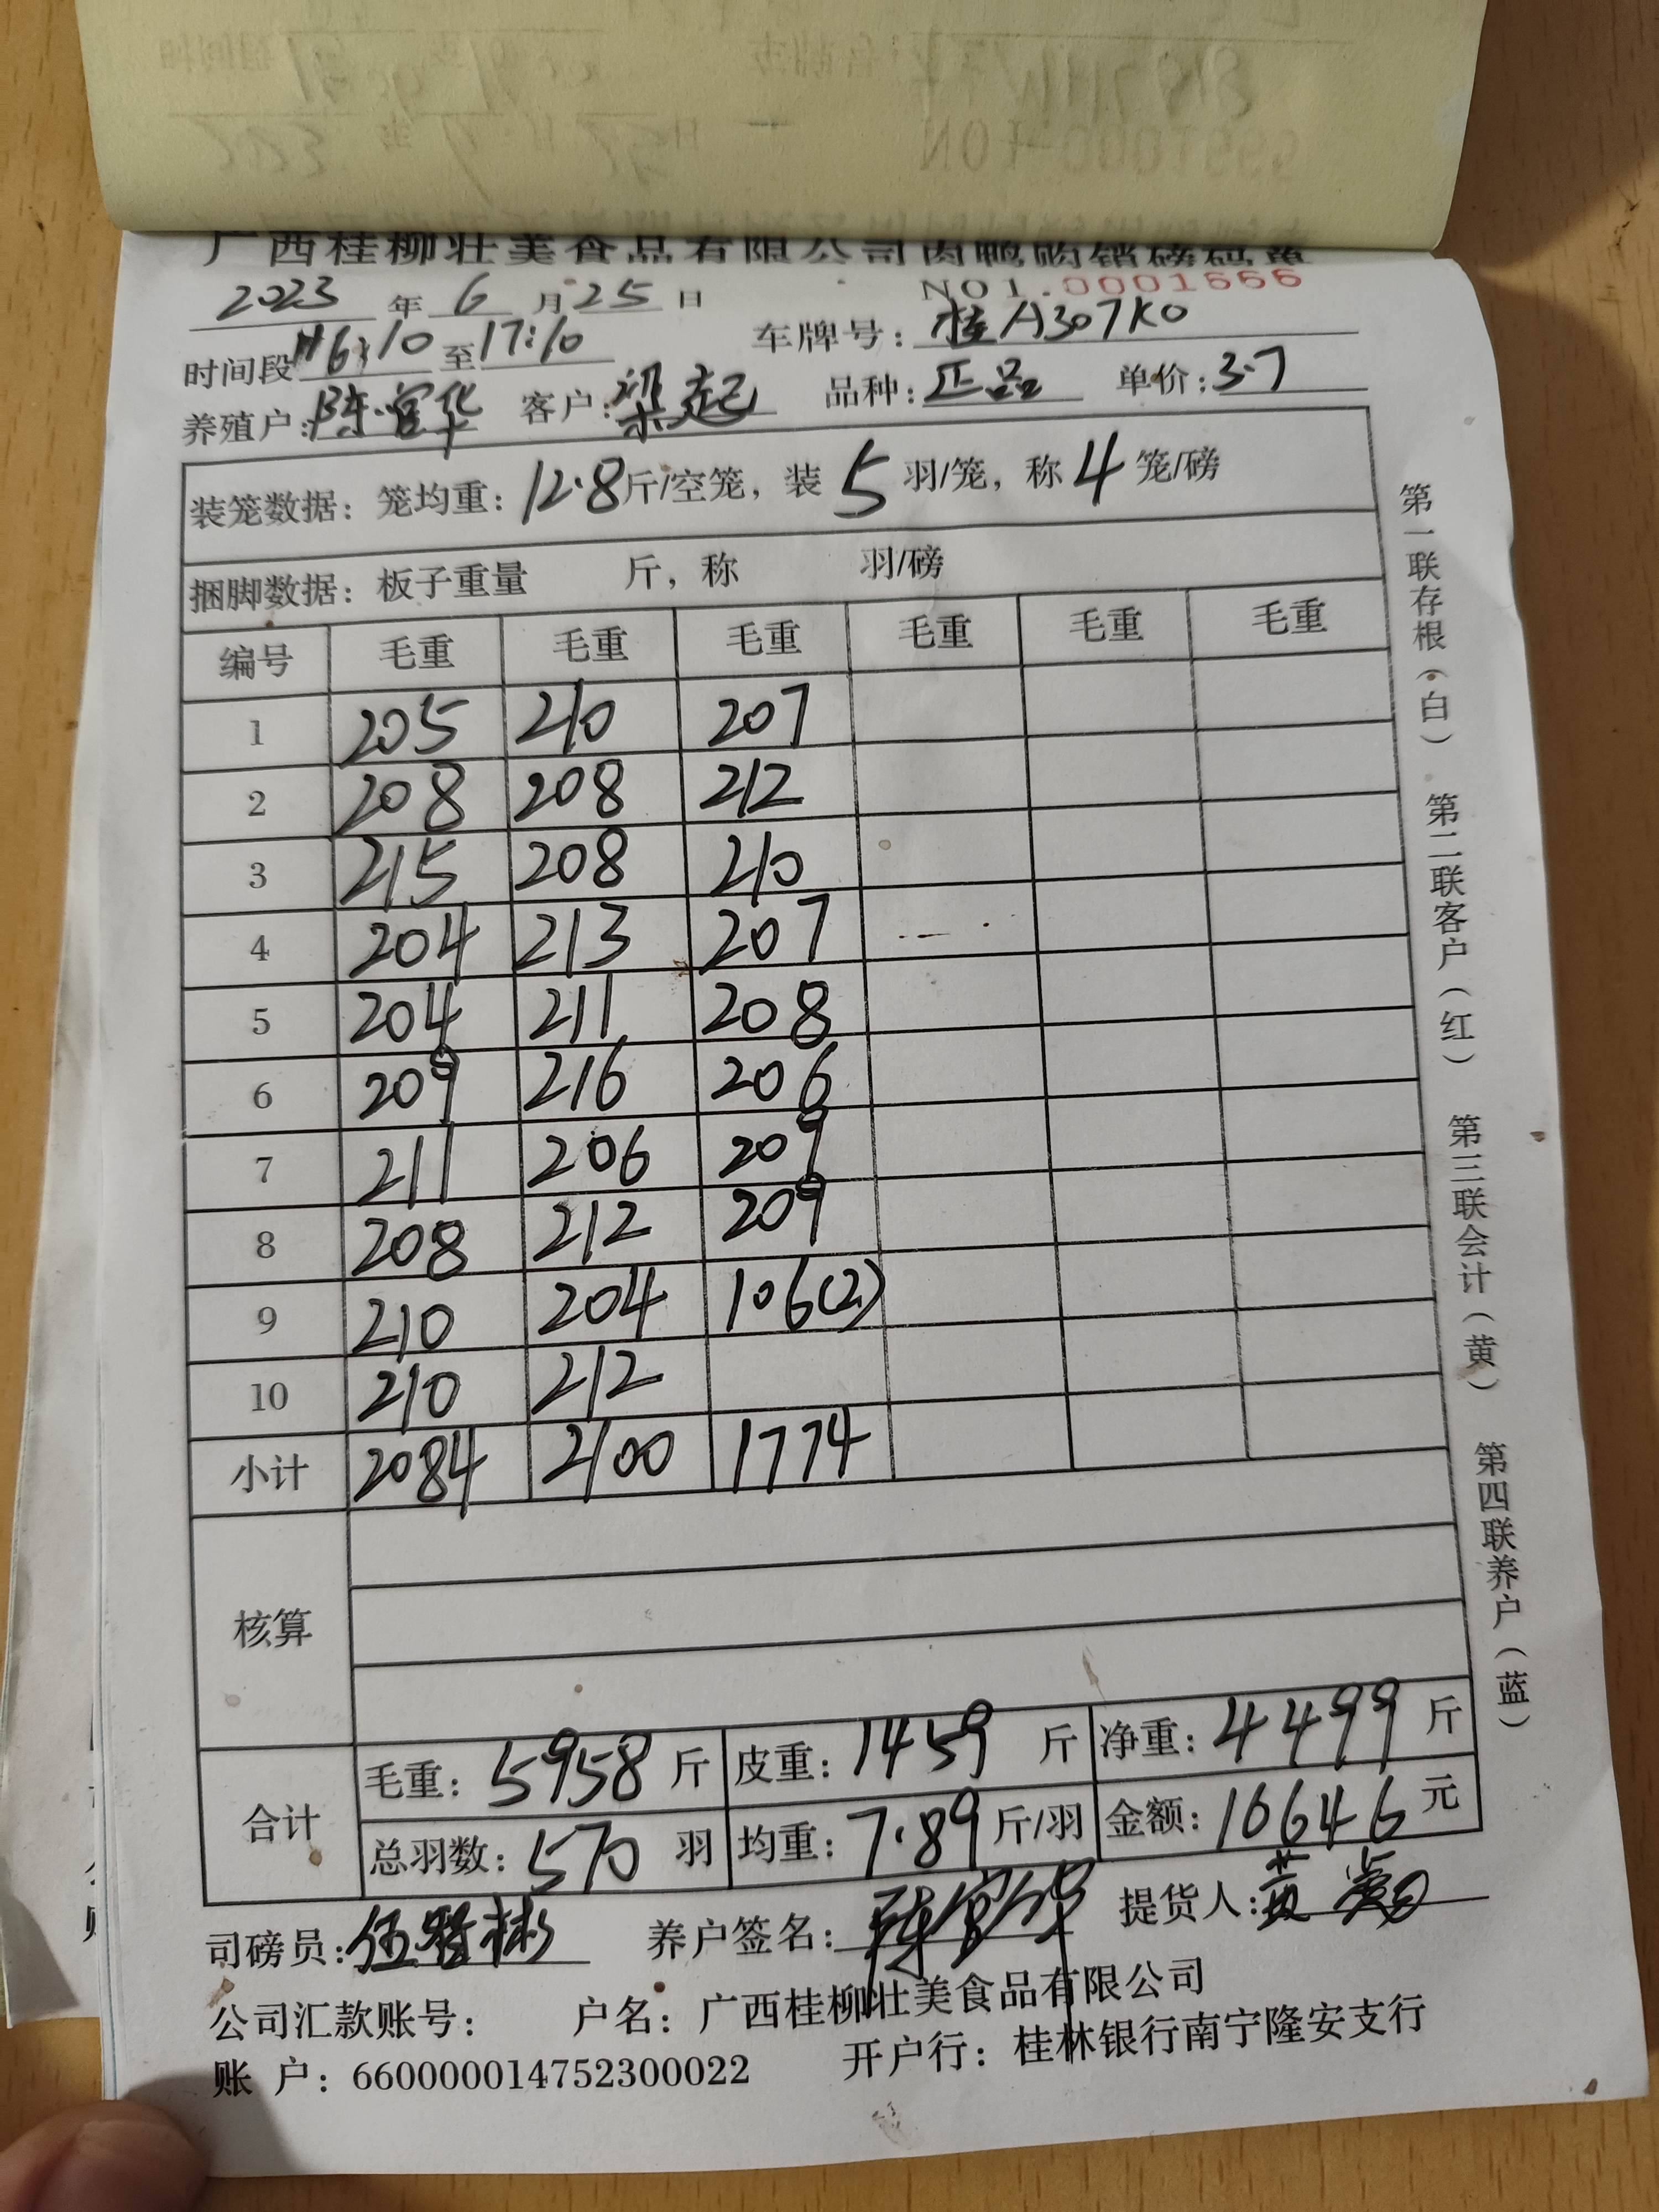 广西桂柳壮美食品有限公司肉鸭购销磅码单
2023年6月25日 NO1.0001666
时间段16:10至17:10 车牌号:桂A307K0
养殖户:陈官华 客户:梁起 品种:正品 单价:3.7
装笼数据：笼均重：12.8斤/空笼，装5羽/笼，称4笼/磅
捆脚数据：板子重量 斤，称 羽/磅
编号 毛重 毛重 毛重 毛重 毛重 毛重
1 205 210 207
2 208 208 212
3 215 208 210
4 204 213 207
5 204 211 208
6 209 216 206
7 211 206 209
8 208 212 209
9 210 204 106(2)
10 210 212
小计 2084 2100 1774
核算
合计 毛重：5958斤 皮重：1459斤 净重：4499斤
总羽数：570羽 均重：7.89斤/羽 金额：16646元
司磅员: 养户签名:陈官华 提货人:黄
公司汇款账号： 户名：广西桂柳壮美食品有限公司
账 户：660000014752300022 开户行：桂林银行南宁隆安支行
第一联存根（白） 第二联客户（红） 第三联会计（黄） 第四联养户（蓝）